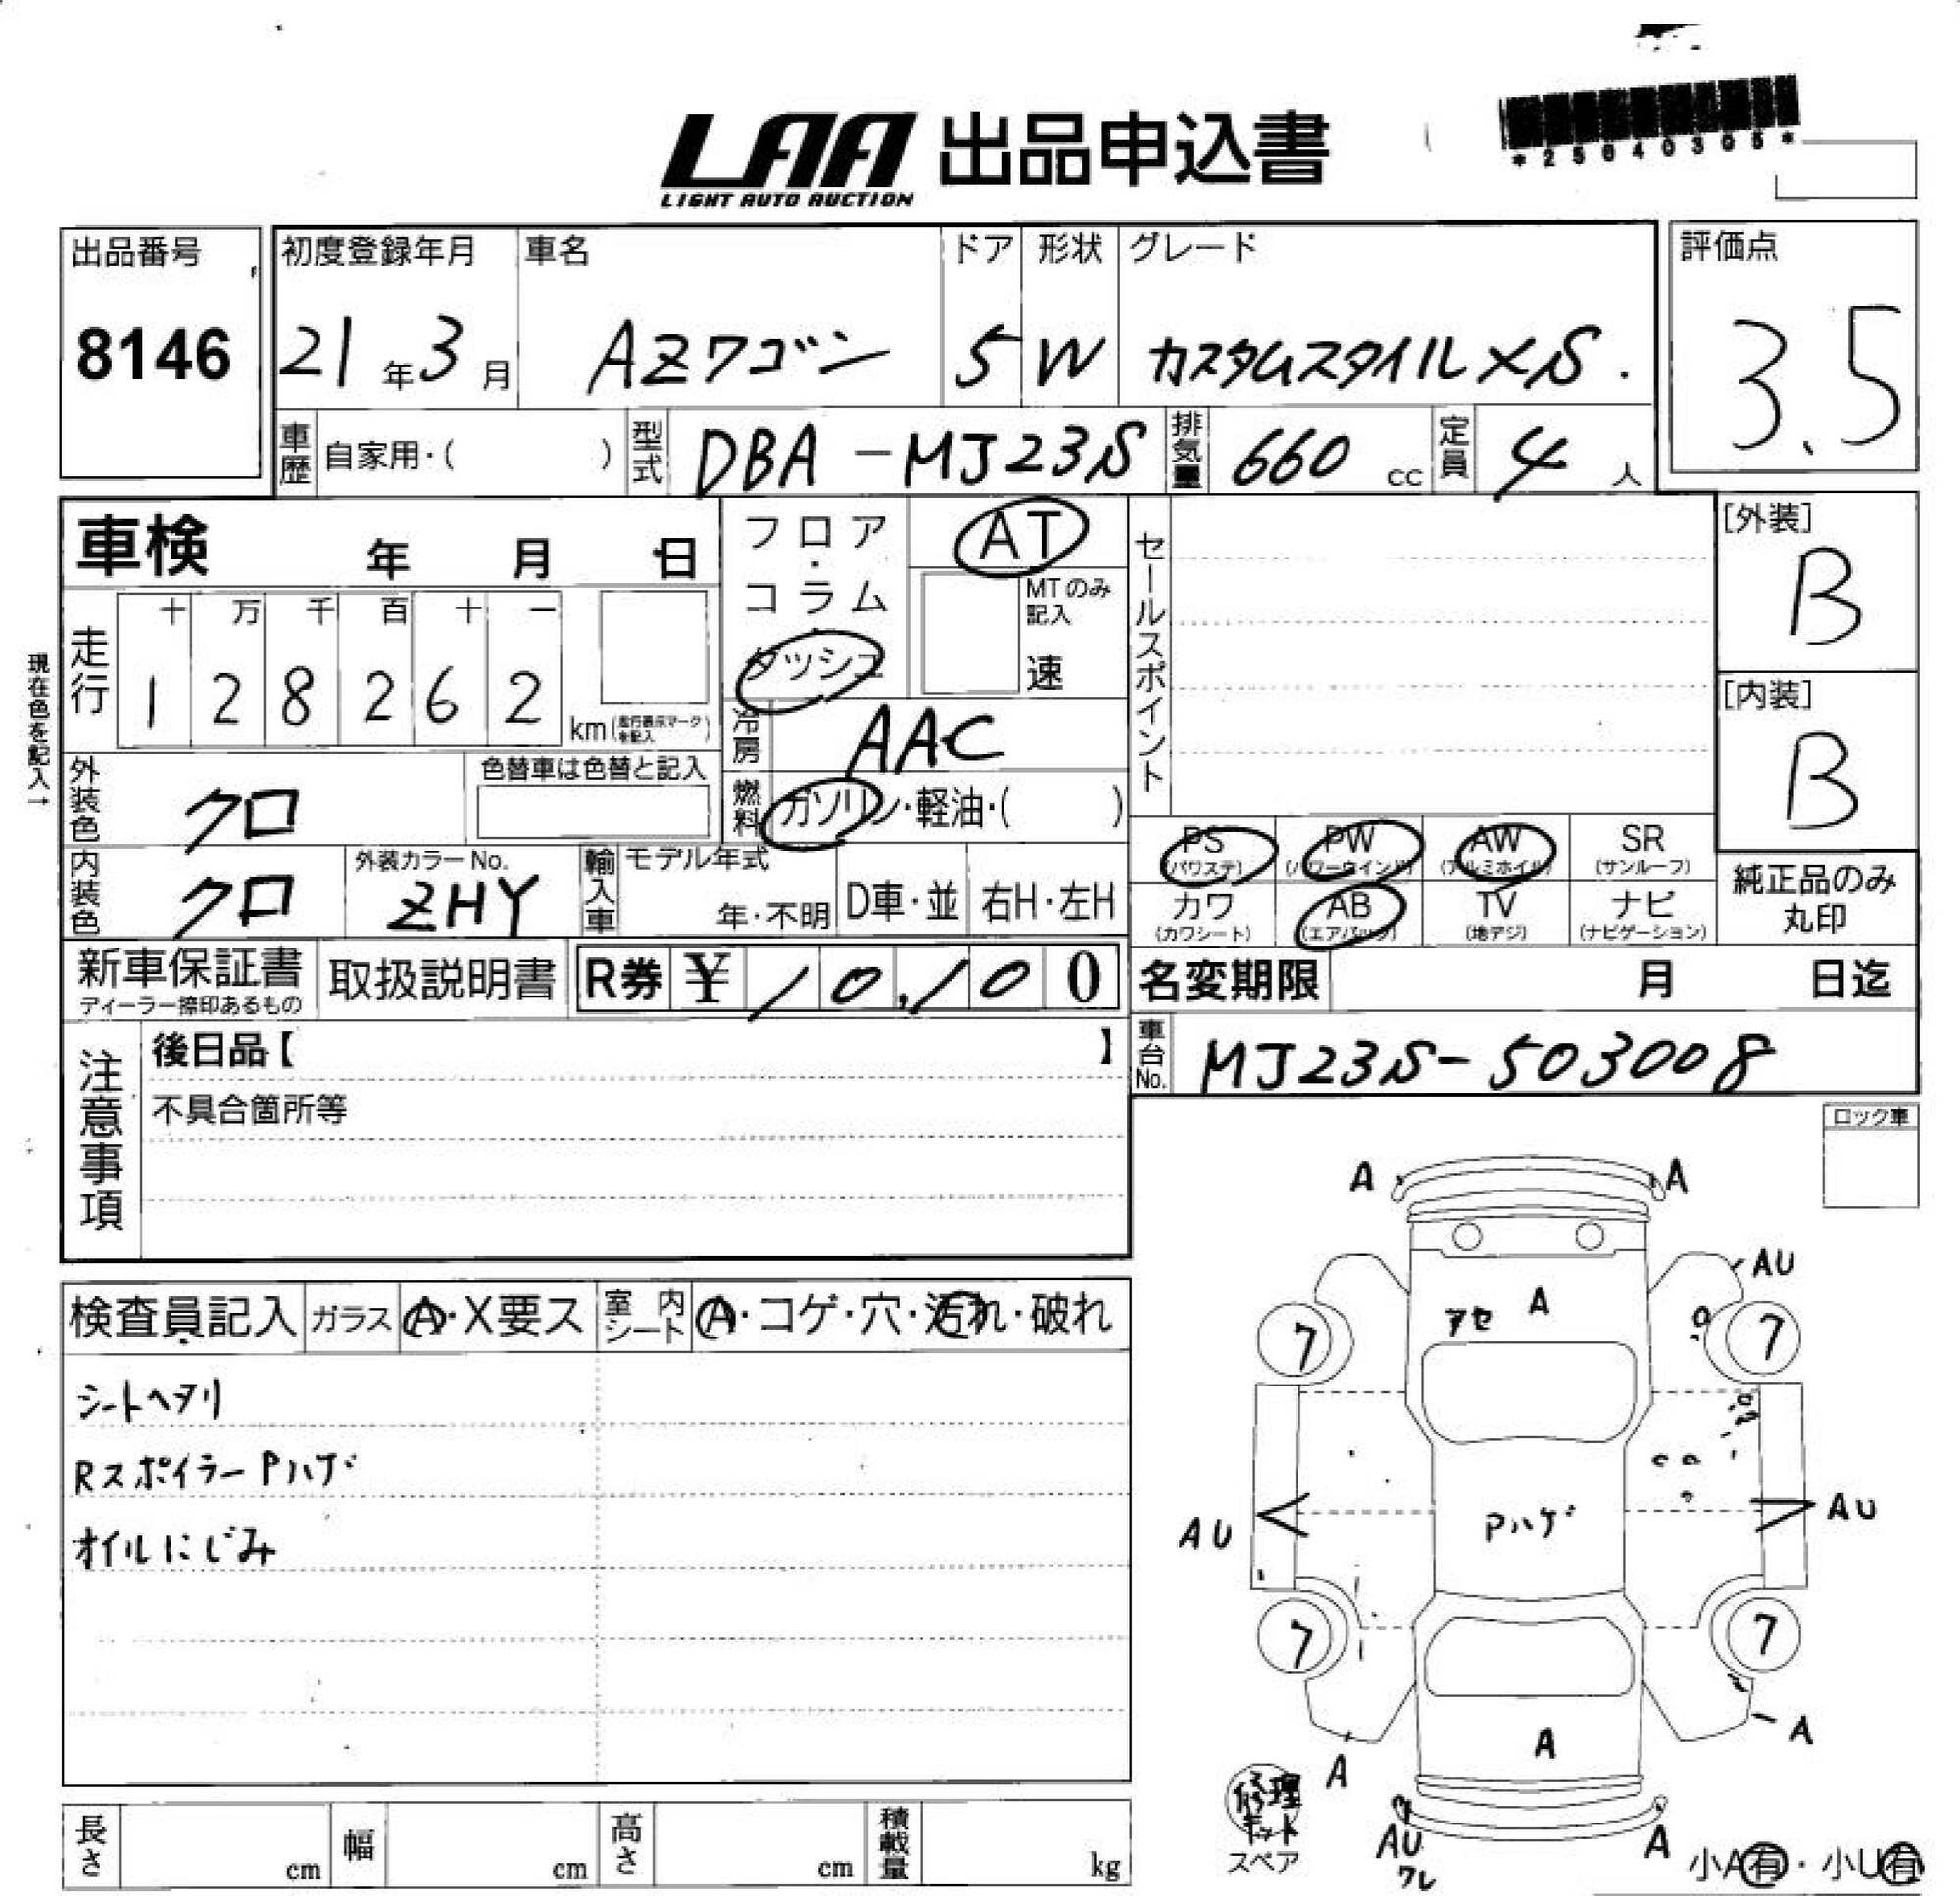 LAA 出品申込書
LIGHT AUTO AUCTION
*25040305*
出品番号
8146
初度登録年月
21年3月
車名
AZワゴン
ドア
5
形状
W
グレード
カスタムスタイルXS.
評価点
3.5
車歴 自家用・( )
型式 DBA-MJ23S
排気量 660 cc
定員 4 人
車検 年 月 日
フロア・コラム・ダッシュ
AT
MTのみ記入
速
セールスポイント
[外装]
B
[内装]
B
現在色を記入→
走行
十 万 千 百 十 一
1 2 8 2 6 2
km(走行表示マークを記入)
冷房 AAC
燃料 ガソリン・軽油・( )
外装色 クロ
色替車は色替と記入
内装色 クロ
外装カラーNo.
ZHY
輸入車
モデル年式
年・不明
D車・並
右H・左H
PS (パワステ)
PW (パワーウインド)
AW (アルミホイル)
SR (サンルーフ)
カワ (カワシート)
AB (エアバック)
TV (地デジ)
ナビ (ナビゲーション)
純正品のみ
丸印
新車保証書
ディーラー捺印あるもの
取扱説明書
R券 ¥10,100
名変期限 月 日迄
車台No. MJ23S-503008
注意事項
後日品【 】
不具合箇所等
ロック車
検査員記入
ガラス A・X要ス
室内シート A・コゲ・穴・汚れ・破れ
シートヘタリ
Rスポイラー Pハゲ
オイルにじみ
A
A
AU
アセ
A
7
7
AU
Pハゲ
AU
7
7
A
A
A
修理キット
スペア
AU
ワレ
A
小A有・小U有
長さ cm
幅 cm
高さ cm
積載量 kg